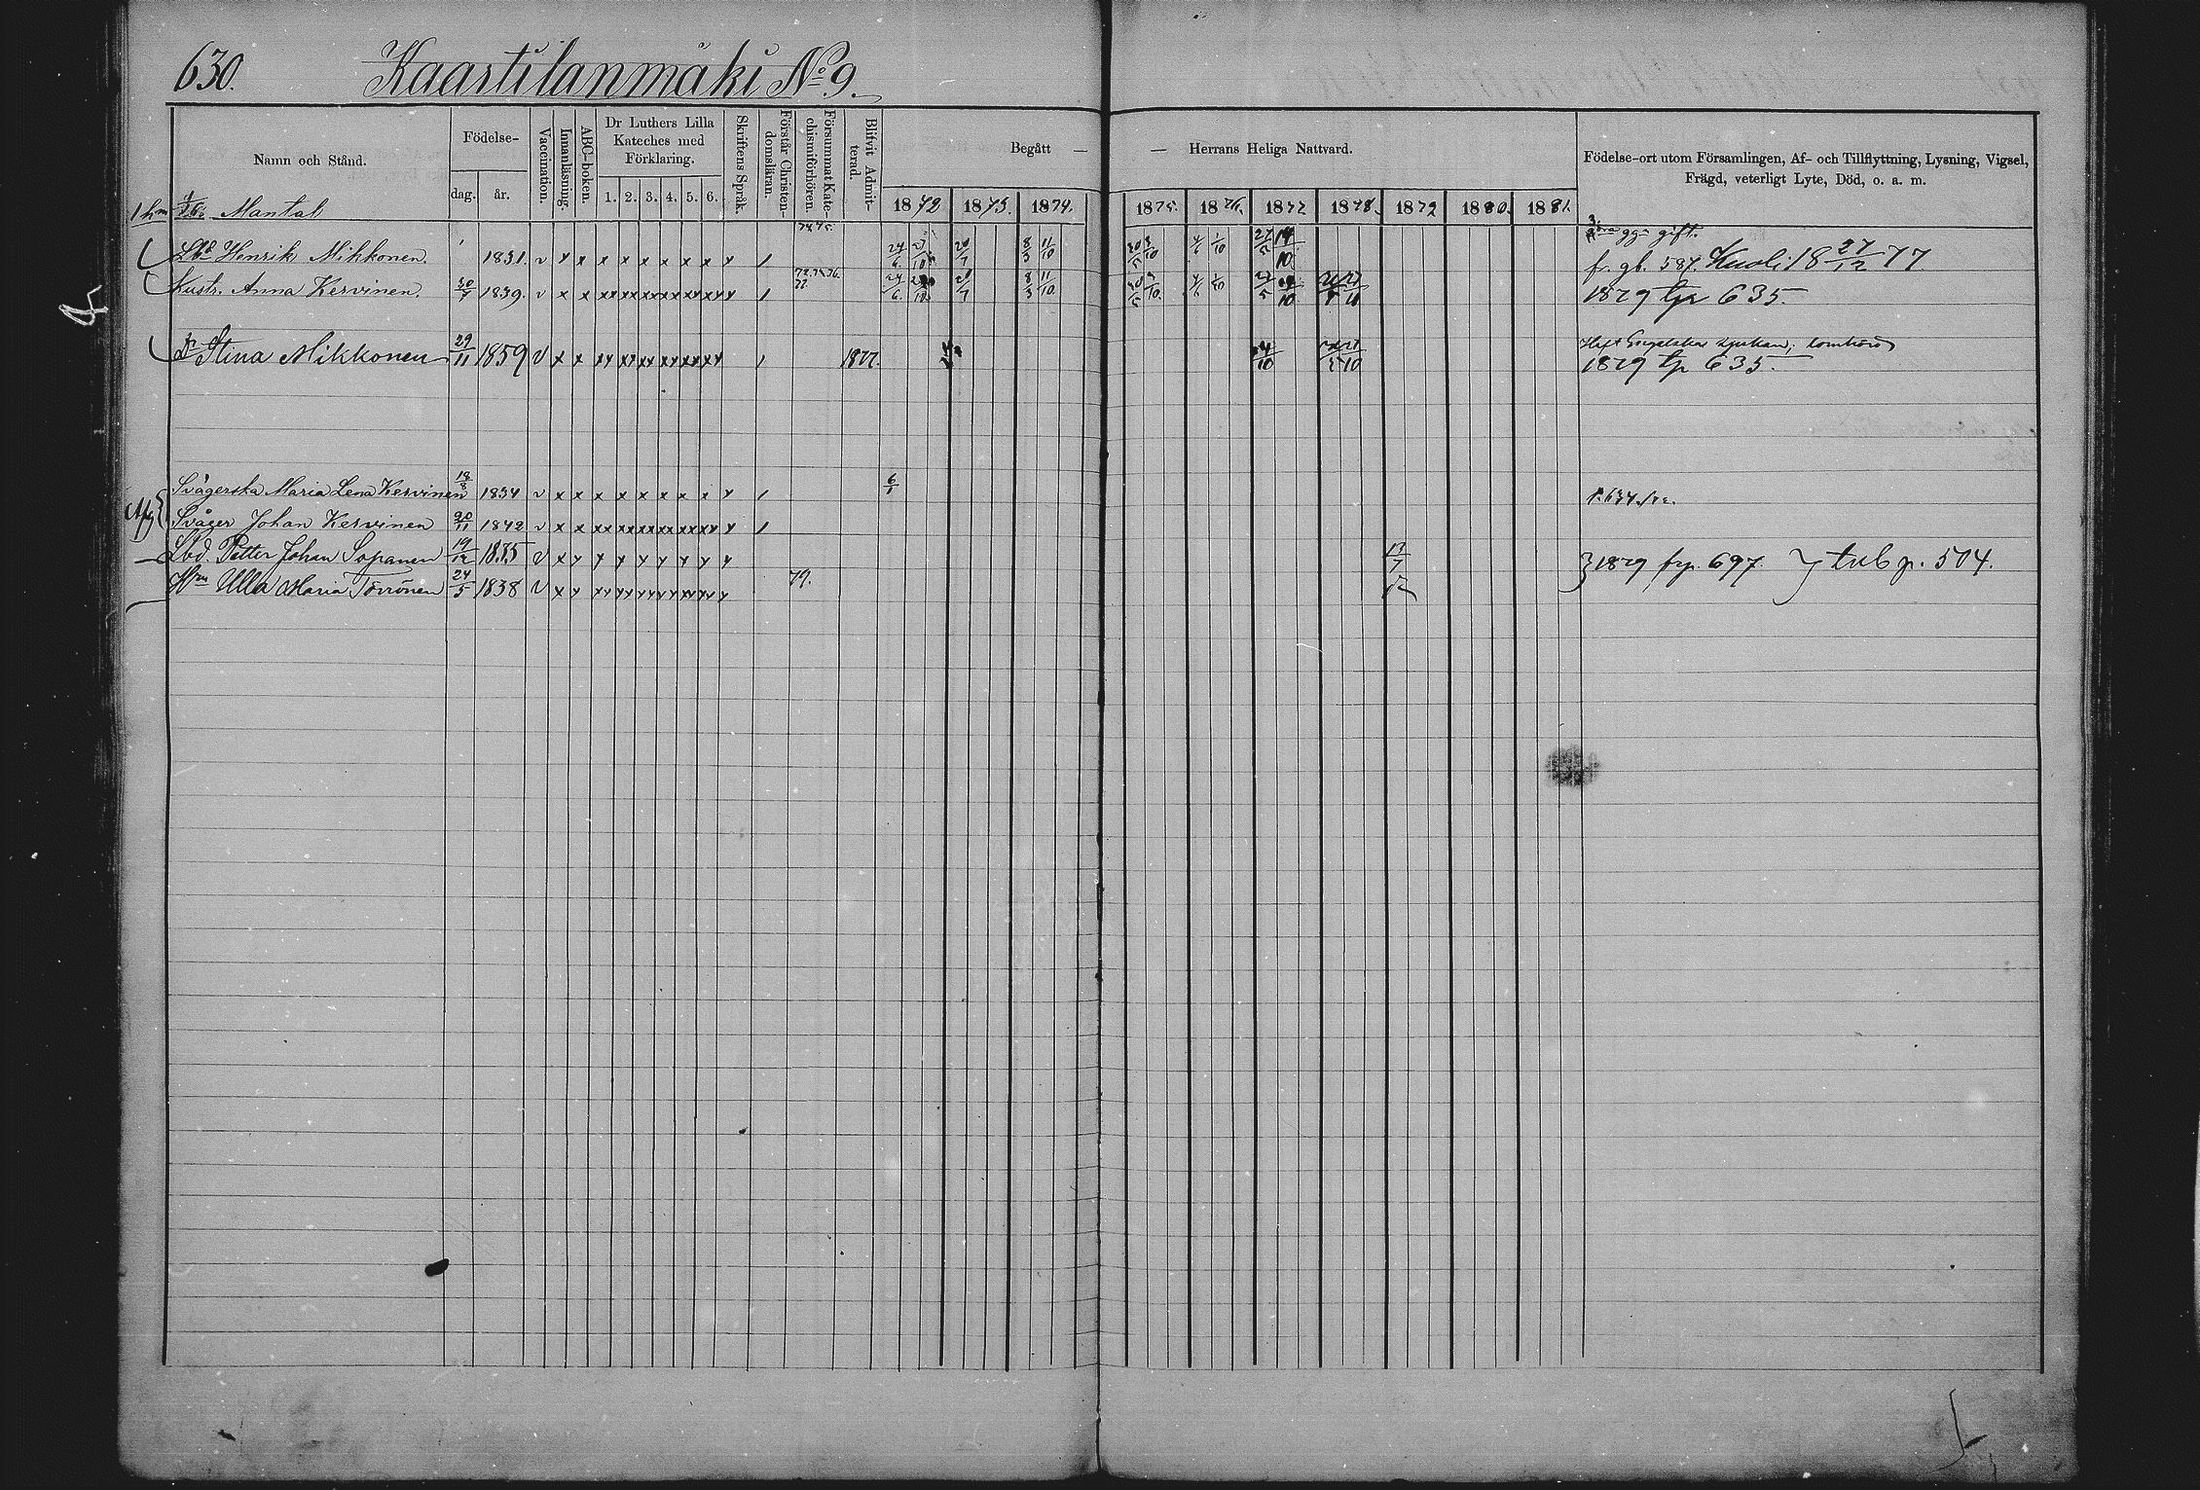 630. Kaartilanmäki No 9.
Namn och Stånd.
Födelse-
dag. år.
Vaccination.
Innanläsning.
ABC-boken.
Dr Luthers Lilla
Kateches med
Förklaring.
1. 2. 3. 4. 5. 6.
Skriftens Språk.
Förstår Christen-
domsläran.
Försummat Kate-
chismiförhören.
Blifvit Admit-
terad.
Begått — — Herrans Heliga Nattvard.
1872 1873. 1874. 1875. 1876. 1877 1878. 1879 1880. 1881.
Födelse-ort utom Församlingen, Af- och Tillflyttning, Lysning, Vigsel,
Frägd, veterligt Lyte, Död, o. a. m.
Mantal
74.75.
gg gift.
Henrik Mikkonen. 1831. v x x x x x x x x x 24/6 20/7 8/3 11/10 30/5 27/5 14/10 fr. gb. 587. Kuoli 18 27/12 77
Hustr. Anna Kervinen. 30/7 1839. v x x xx xx xx xx xx xx 24/6 8/3 11/10 1879 tp 635.
Stina Mikkonen 29/11 1859 v x x xx xx xx xx xx xx 1877. 1879 tp 635.
Svägerska Maria Lena Kervinen 18/8 1834 v x x x x x x x x x 6/1
Svåger Johan Kervinen 20/11 1842 v x x xx xx xx xx xx xx
Lbd. Petter Johan Sopanen 19/12 1835 v x x x x x x x x x 13/7 1879 frp. 697. tub p. 504.
Hm Ulla Maria Törrönen 24/5 1838 v x x xx xx xx xx xx xx 79.